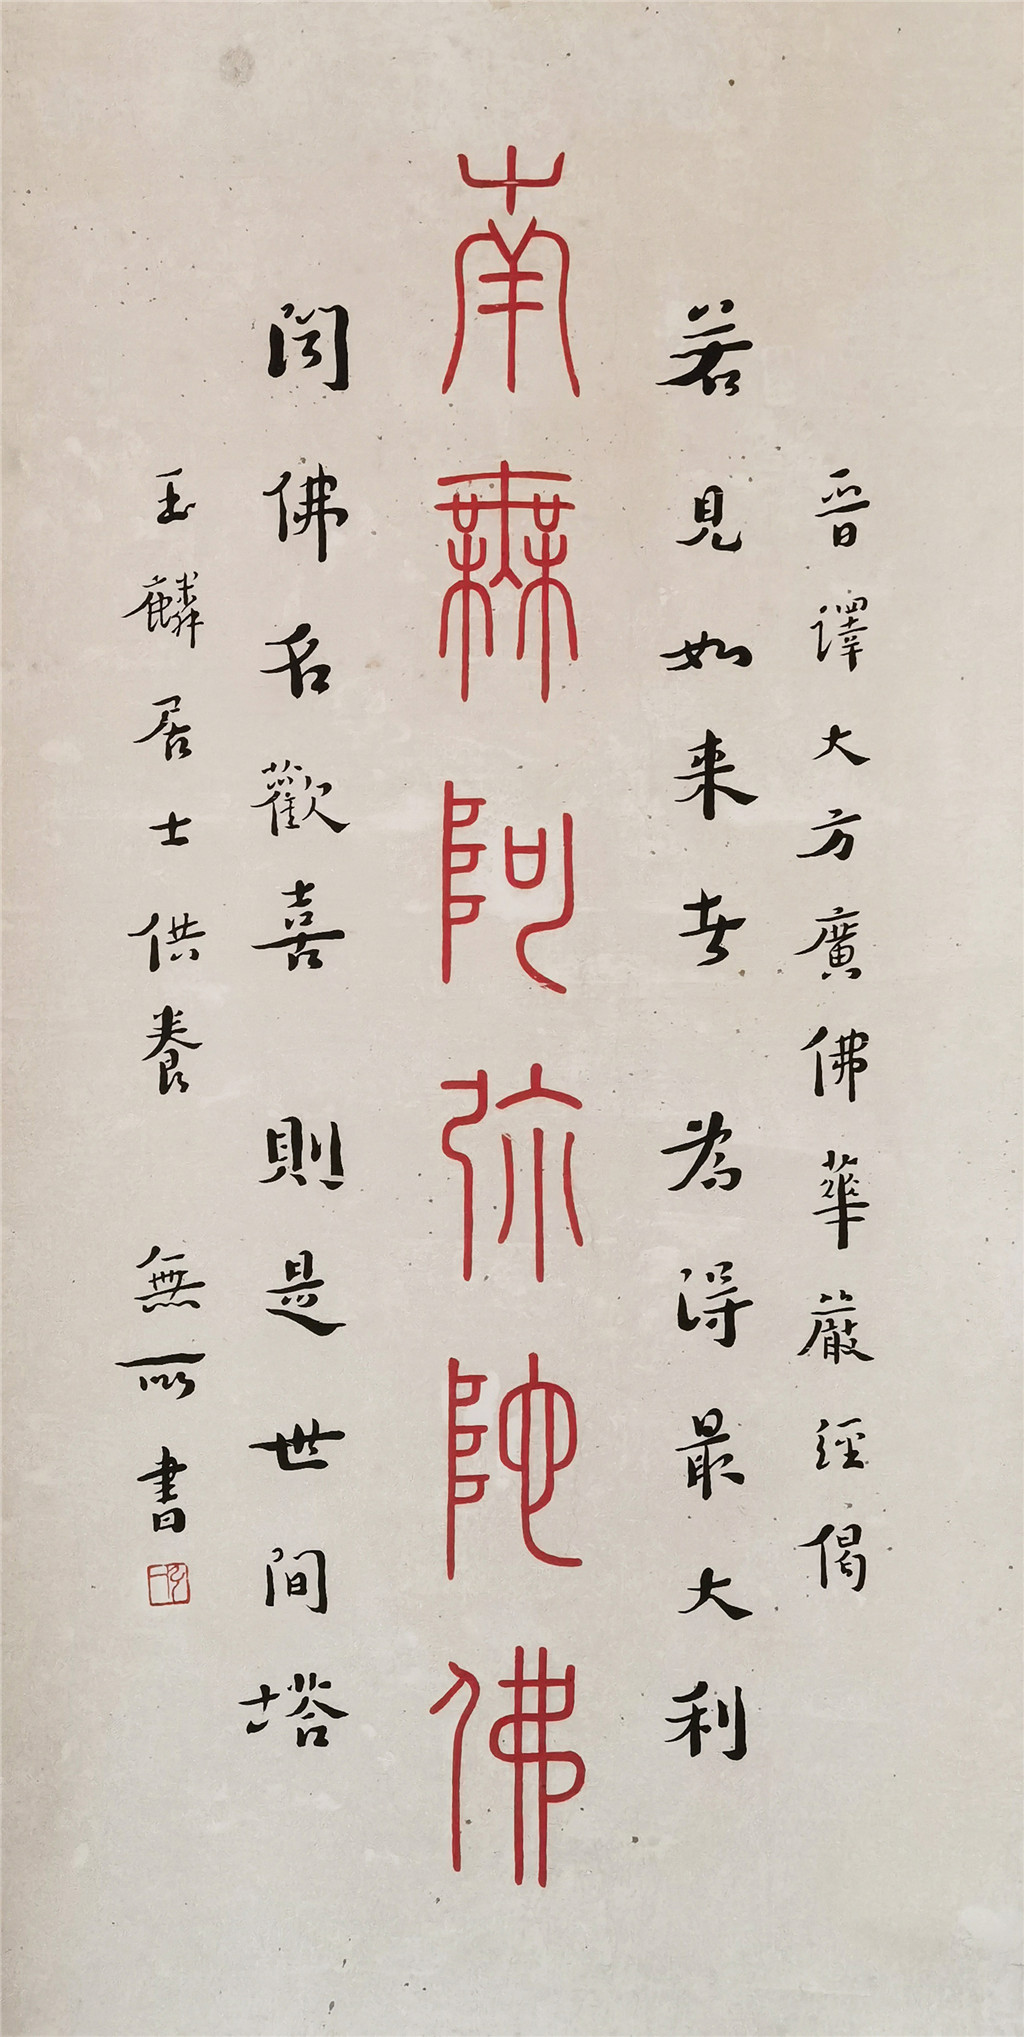 晋譯大方廣佛華嚴經偈
若見如来者 為得最大利
南無阿弥陀佛
聞佛名歡喜 則是世間塔
玉麟居士供養 無所書